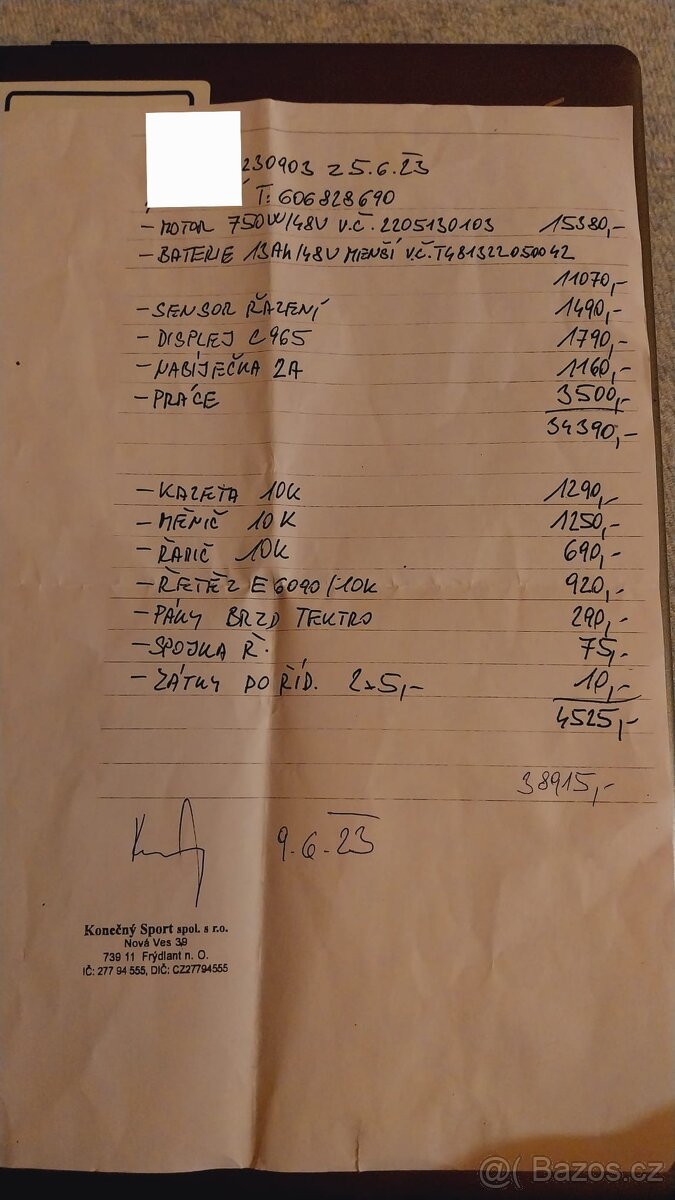 230903 z 5.6.23
T: 606828690
- MOTOR 750W/48V V.Č. 2205130103 15380,-
- BATERIE 13Ah/48V MENŠÍ V.Č. T481322050042
11070,-
- SENSOR ŘAZENÍ 1490,-
- DISPLEJ C965 1790,-
- NABÍJEČKA 2A 1160,-
- PRÁCE 3500,-
34390,-
- KAZETA 10K 1290,-
- MĚNIČ 10K 1250,-
- ŘADIČ 10K 690,-
- ŘETĚZ E6090/10K 920,-
- PÁKY BRZD TEKTRO 290,-
- SPOJKA Ř. 75,-
- ZÁTKY DO ŘÍD. 2x5,- 10,-
4525,-
38915,-
9.6.23
Konečný Sport spol. s r.o.
Nová Ves 39
739 11 Frýdlant n. O.
IČ: 277 94 555, DIČ: CZ27794555
@( Bazos.cz